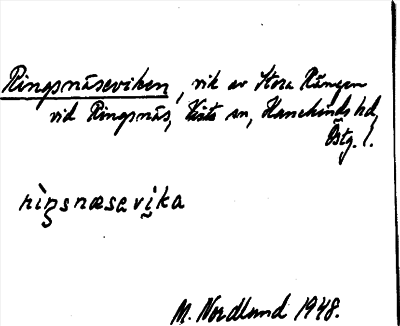 Ringsnäseviken, vik av Stora Rängen
vid Ringsnäs, Vists sn, Hanekinds hd,
Östg. l.
rìŋsnæsavi̬ka
M. Nordlund 1948.